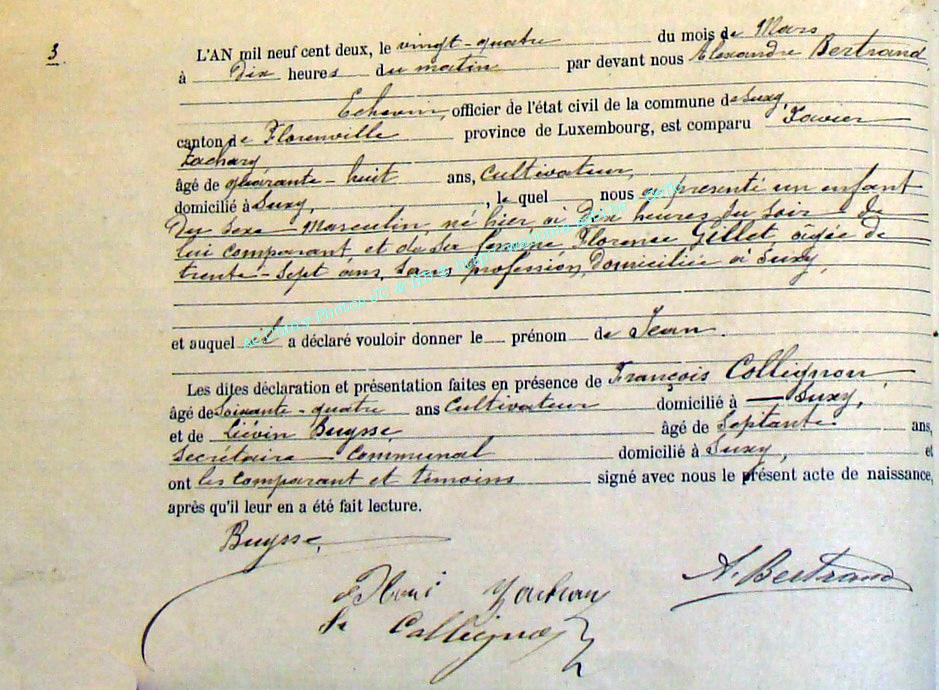 3.
L'AN mil neuf cent deux, le vingt-quatre du mois de Mars
à Dix heures du matin par devant nous Alexandre Bertrand,
Echevin, officier de l'état civil de la commune de Suxy,
canton de Florenville province de Luxembourg, est comparu Xavier
Zachary
âgé de quarante-huit ans, Cultivateur,
domicilié à Suxy, , le quel nous a présenté un enfant
Du Sexe Masculin, né hier, à Dix heures du soir de
lui comparant et de sa femme Florence Gillet, âgée de
trente-sept ans, Sans profession, Domiciliée à Suxy,
et auquel il a déclaré vouloir donner le prénom de Jean.
Les dites déclaration et présentation faites en présence de François Collignon,
âgé de Soixante-quatre ans Cultivateur domicilié à Suxy,
et de Liévin Buysse, âgé de Septante ans,
Secrétaire Communal domicilié à Suxy, et
ont les comparant et témoins signé avec nous le présent acte de naissance,
après qu'il leur en a été fait lecture.
Buysse,
A. Bertrand
Collignon